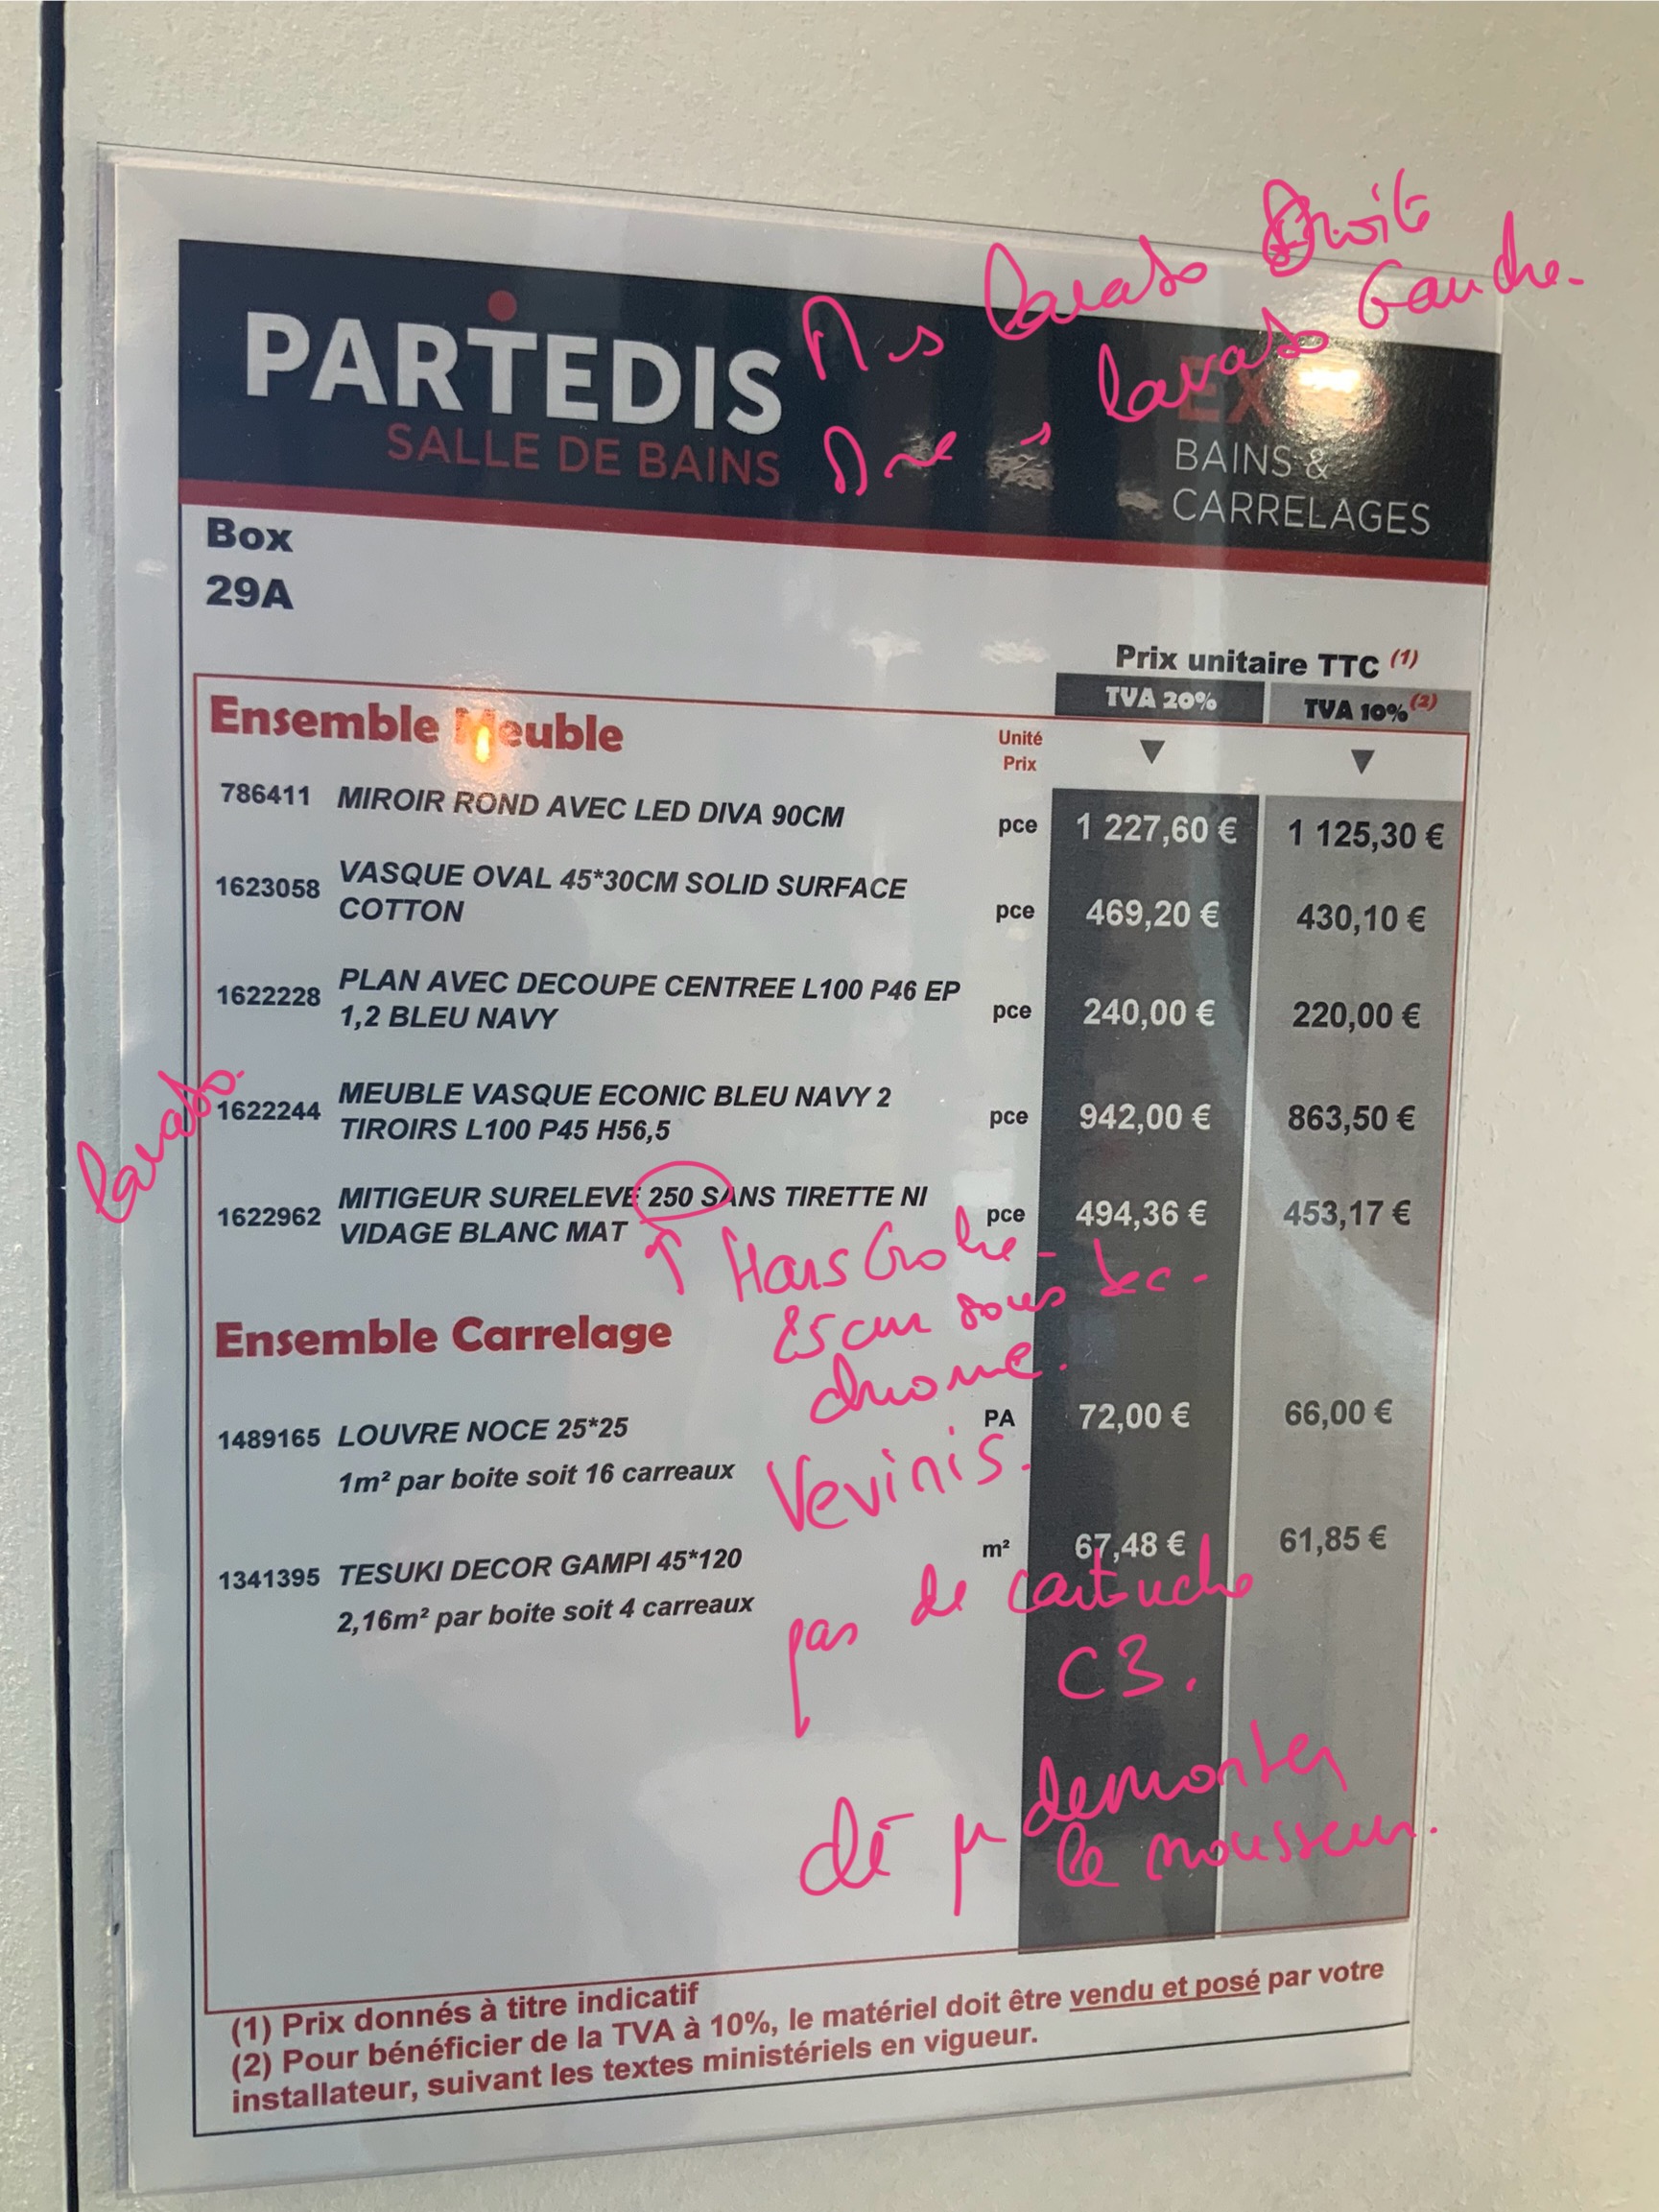 Mrs lavabo Droite
Mme s lavabo Gauche.
PARTEDIS
SALLE DE BAINS
BAINS &
CARRELAGES
Box
29A
Prix unitaire TTC (1)
TVA 20% TVA 10% (2)
Ensemble Meuble
Unité
Prix
786411 MIROIR ROND AVEC LED DIVA 90CM pce 1 227,60 € 1 125,30 €
1623058 VASQUE OVAL 45*30CM SOLID SURFACE
COTTON pce 469,20 € 430,10 €
1622228 PLAN AVEC DECOUPE CENTREE L100 P46 EP
1,2 BLEU NAVY pce 240,00 € 220,00 €
lavabo.
1622244 MEUBLE VASQUE ECONIC BLEU NAVY 2
TIROIRS L100 P45 H56,5 pce 942,00 € 863,50 €
1622962 MITIGEUR SURELEVE 250 SANS TIRETTE NI
VIDAGE BLANC MAT pce 494,36 € 453,17 €
↑ Hans Grohe -
25cm sous bec -
chrome.
Ensemble Carrelage
1489165 LOUVRE NOCE 25*25 PA 72,00 € 66,00 €
1m² par boite soit 16 carreaux
Vevinis.
1341395 TESUKI DECOR GAMPI 45*120 m² 67,48 € 61,85 €
2,16m² par boite soit 4 carreaux
pas de cartouche
C3.
clé pr demonter
le mousseur.
(1) Prix donnés à titre indicatif
(2) Pour bénéficier de la TVA à 10%, le matériel doit être vendu et posé par votre
installateur, suivant les textes ministériels en vigueur.